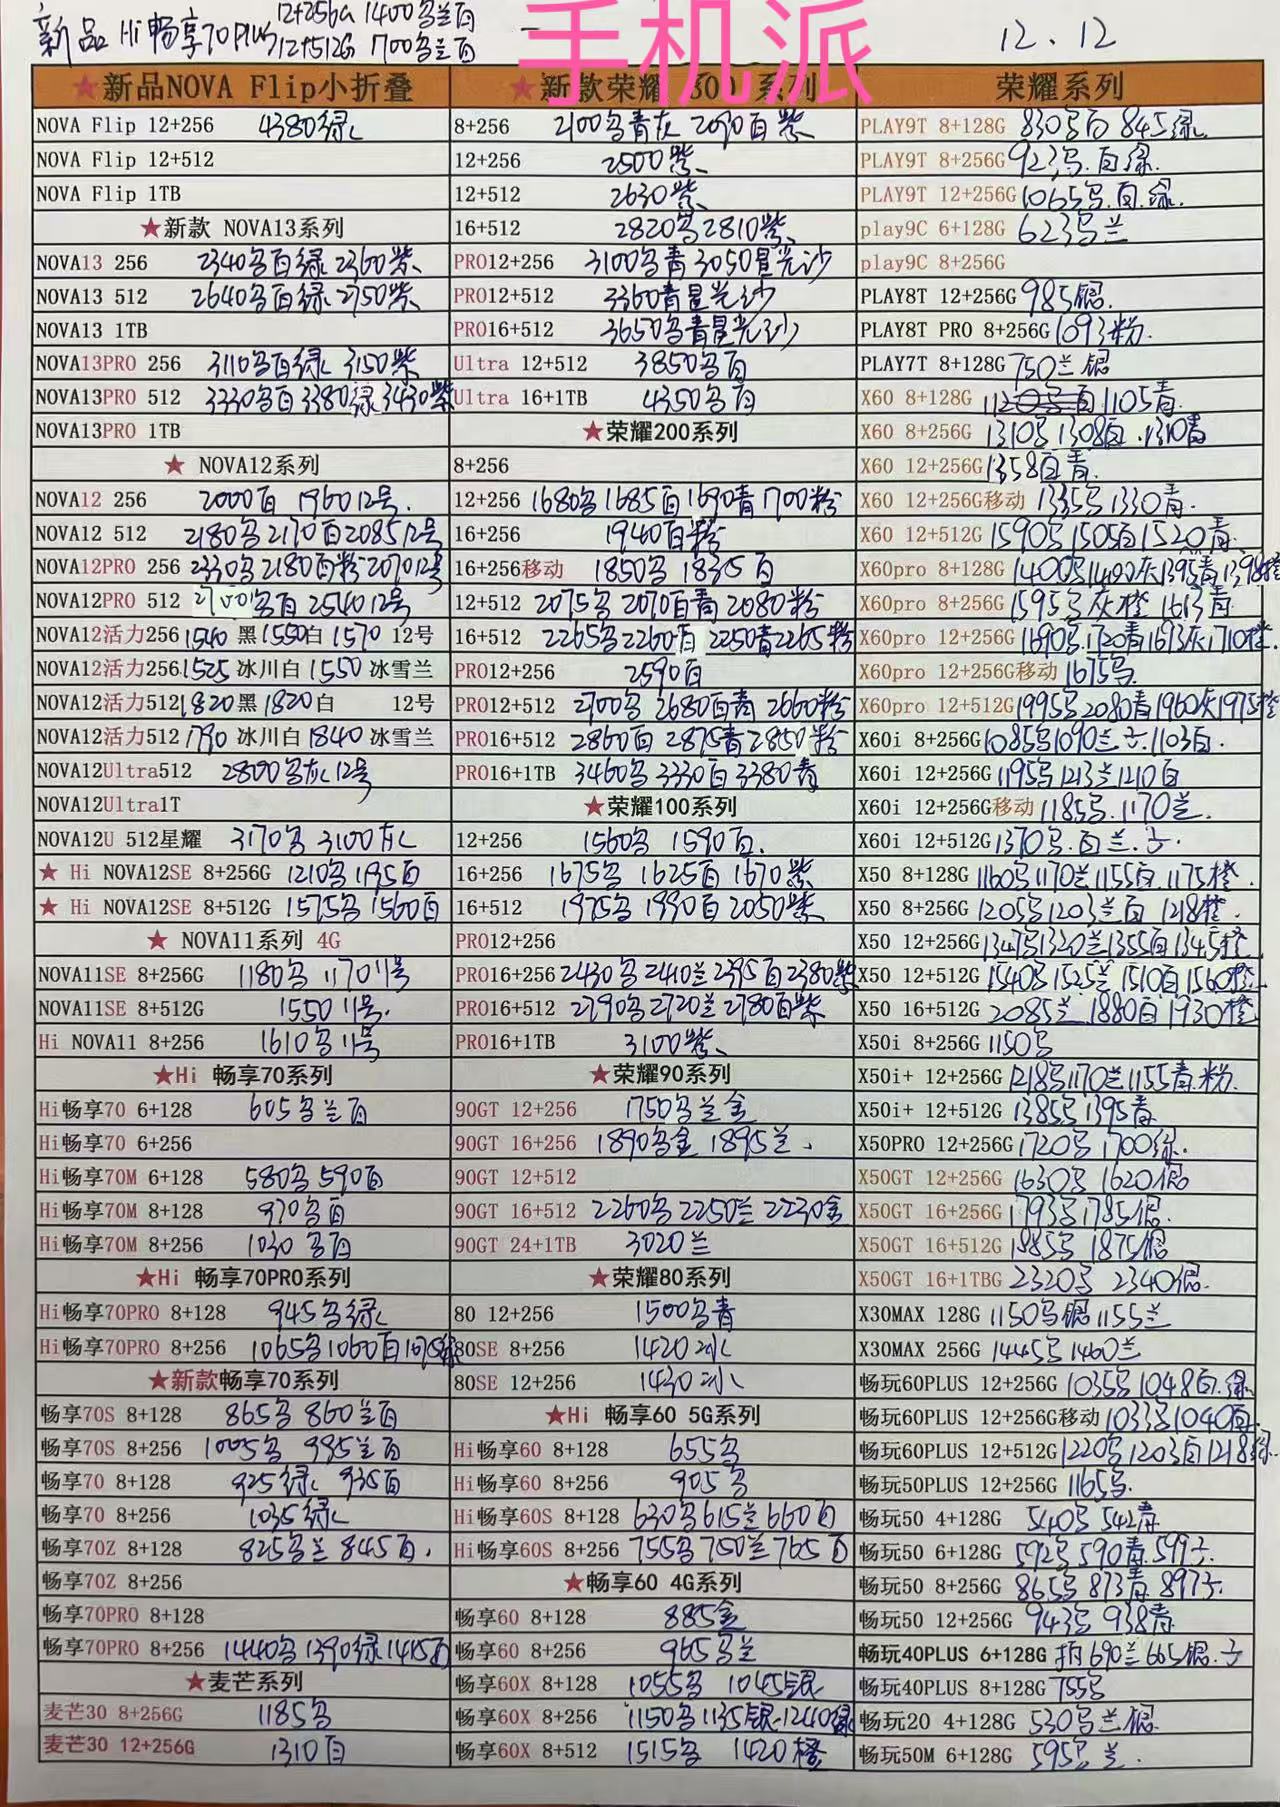 新品 Hi畅享70PLUS 12+256G 1400名兰百
12+512G 1700名兰百
手机派
12.12
★新品NOVA Flip小折叠
NOVA Flip 12+256 4380绿
NOVA Flip 12+512
NOVA Flip 1TB
★新款 NOVA13系列
NOVA13 256 2340名百绿 2360紫
NOVA13 512 2640名百绿 2750紫
NOVA13 1TB
NOVA13PRO 256 3110名百绿 3150紫
NOVA13PRO 512 3330名百 3380绿 3430紫
NOVA13PRO 1TB
★ NOVA12系列
NOVA12 256 2000百 1960 12号
NOVA12 512 2180名 2170百 2085 12号
NOVA12PRO 256 2330名 2180百粉 2070 12号
NOVA12PRO 512 名百 2540 12号
NOVA12活力256 1540 黑 1550白 1570 12号
NOVA12活力256 1525 冰川白 1550 冰雪兰
NOVA12活力512 1820 黑 1820 白 12号
NOVA12活力512 1790 冰川白 1840 冰雪兰
NOVA12Ultra512 2800名灰 12号
NOVA12Ultra1T
NOVA12U 512星耀 3170名 3100灰
★ Hi NOVA12SE 8+256G 1210名 1195百
★ Hi NOVA12SE 8+512G 1575名 1560百
★ NOVA11系列 4G
NOVA11SE 8+256G 1180名 1170 11号
NOVA11SE 8+512G 1550 11号.
Hi NOVA11 8+256 1610名 11号
★Hi 畅享70系列
Hi畅享70 6+128 605名兰百
Hi畅享70 6+256
Hi畅享70M 6+128 580名 590百
Hi畅享70M 8+128 970名百
Hi畅享70M 8+256 1030 名百
★Hi 畅享70PRO系列
Hi畅享70PRO 8+128 945名绿
Hi畅享70PRO 8+256 1065名 1060百 1075绿
★新款畅享70系列
畅享70S 8+128 865名 860兰百
畅享70S 8+256 1005名 995兰百
畅享70 8+128 925绿 935百
畅享70 8+256 1035绿
畅享70Z 8+128 825名兰 845百.
畅享70Z 8+256
畅享70PRO 8+128
畅享70PRO 8+256 1440名 1390绿 1415百
★麦芒系列
麦芒30 8+256G 1185名
麦芒30 12+256G 1310百
★新款荣耀 300 系列
8+256 2100名青灰 2090百紫
12+256 2500紫
12+512 2630紫
16+512 2820名 2810紫
PRO12+256 3100名青 3050星光沙
PRO12+512 3360青星光沙
PRO16+512 3650名青星光沙
Ultra 12+512 3850名百
Ultra 16+1TB 4350名百
★荣耀200系列
8+256
12+256 1680名 1685百 1690青 1700粉
16+256 1940百粉
16+256移动 1850名 1835百
12+512 2075名 2070百青 2080粉
16+512 2265名 2260百 2250青 2265粉
PRO12+256 2590百
PRO12+512 2700名 2680百青 2660粉
PRO16+512 2860百 2875青 2850粉
PRO16+1TB 3460名 3330百 3380青
★荣耀100系列
12+256 1560名 1590百.
16+256 1675名 1625百 1670紫
16+512 1975名 1990百 2050紫
PRO12+256
PRO16+256 2430名 2410兰 2395百 2380紫
PRO16+512 2790名 2720兰 2780百紫
PRO16+1TB 3100紫
★荣耀90系列
90GT 12+256 1750名兰金
90GT 16+256 1890名金 1895兰.
90GT 12+512
90GT 16+512 2260名 2250兰 2230金
90GT 24+1TB 3020兰
★荣耀80系列
80 12+256 1500名青
80SE 8+256 1420冰
80SE 12+256 1430冰
★Hi 畅享60 5G系列
Hi畅享60 8+128 655名
Hi畅享60 8+256 905名
Hi畅享60S 8+128 630名 615兰 660百
Hi畅享60S 8+256 755名 750兰 765百
★畅享60 4G系列
畅享60 8+128 885金
畅享60 8+256 965名兰
畅享60X 8+128 1055名 1045银
畅享60X 8+256 1150名 1135银 1240绿
畅享60X 8+512 1515名 1420橙
荣耀系列
PLAY9T 8+128G 830名百 845绿
PLAY9T 8+256G 923名.百绿.
PLAY9T 12+256G 1065名.百.绿.
play9C 6+128G 623名兰
play9C 8+256G
PLAY8T 12+256G 985银.
PLAY8T PRO 8+256G 1093粉.
PLAY7T 8+128G 750兰银
X60 8+128G 1120名百 1105青.
X60 8+256G 1310名 1308百.1310青
X60 12+256G 1358百青.
X60 12+256G移动 1335名 1330青.
X60 12+512G 1590名 1505百 1520青.
X60pro 8+128G 1400名 1400灰 1395青 1398橙
X60pro 8+256G 1595名灰橙 1613青
X60pro 12+256G 1690名.1720青 1693灰 1710橙.
X60pro 12+256G移动 1675名.
X60pro 12+512G 1995名 2080青 1960灰 1975橙
X60i 8+256G 1085名 1090兰子.1103百.
X60i 12+256G 1195名 1213兰 1210百
X60i 12+256G移动 1185名.1170兰.
X60i 12+512G 1370名.百兰.子.
X50 8+128G 1160名 1170兰 1155百.1175橙.
X50 8+256G 1205名 1203兰百 1218橙.
X50 12+256G 1347名 1320兰 1355百 1345橙
X50 12+512G 1540名 1525兰 1510百 1560橙
X50 16+512G 2085兰.1880百 1930橙
X50i 8+256G 1150名
X50i+ 12+256G 1218名 1170兰 1155青.粉.
X50i+ 12+512G 1385名 1395青
X50PRO 12+256G 1720名 1700绿.
X50GT 12+256G 1630名 1620银
X50GT 16+256G 1793名 1785银.
X50GT 16+512G 1885名 1875银
X50GT 16+1TBG 2320名 2340银.
X30MAX 128G 1150名银 1155兰
X30MAX 256G 1445名 1460兰
畅玩60PLUS 12+256G 1035名 1048百.绿
畅玩60PLUS 12+256G移动 1033名 1040百.
畅玩60PLUS 12+512G 1220名 1203百 1218绿.
畅玩50PLUS 12+256G 1165名.
畅玩50 4+128G 540名 542青
畅玩50 6+128G 592名 590青.599子.
畅玩50 8+256G 865名 873青 897子.
畅玩50 12+256G 943名 938青
畅玩40PLUS 6+128G 拍690兰 665银.子
畅玩40PLUS 8+128G 755名
畅玩20 4+128G 530名兰银.
畅玩50M 6+128G 595名兰.